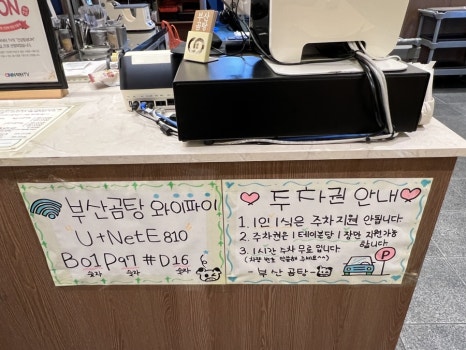 부산
곰탕
부산곰탕 와이파이
U+NetE810
Bo1P97 #D16
숫자 숫자 숫자
주차권 안내
1. 1인 1식은 주차지원 안됩니다
2. 주차권은 1테이블당 1장만 지원가능
합니다
3. 1시간 주차 무료 입니다
- 부산곰탕 -
P